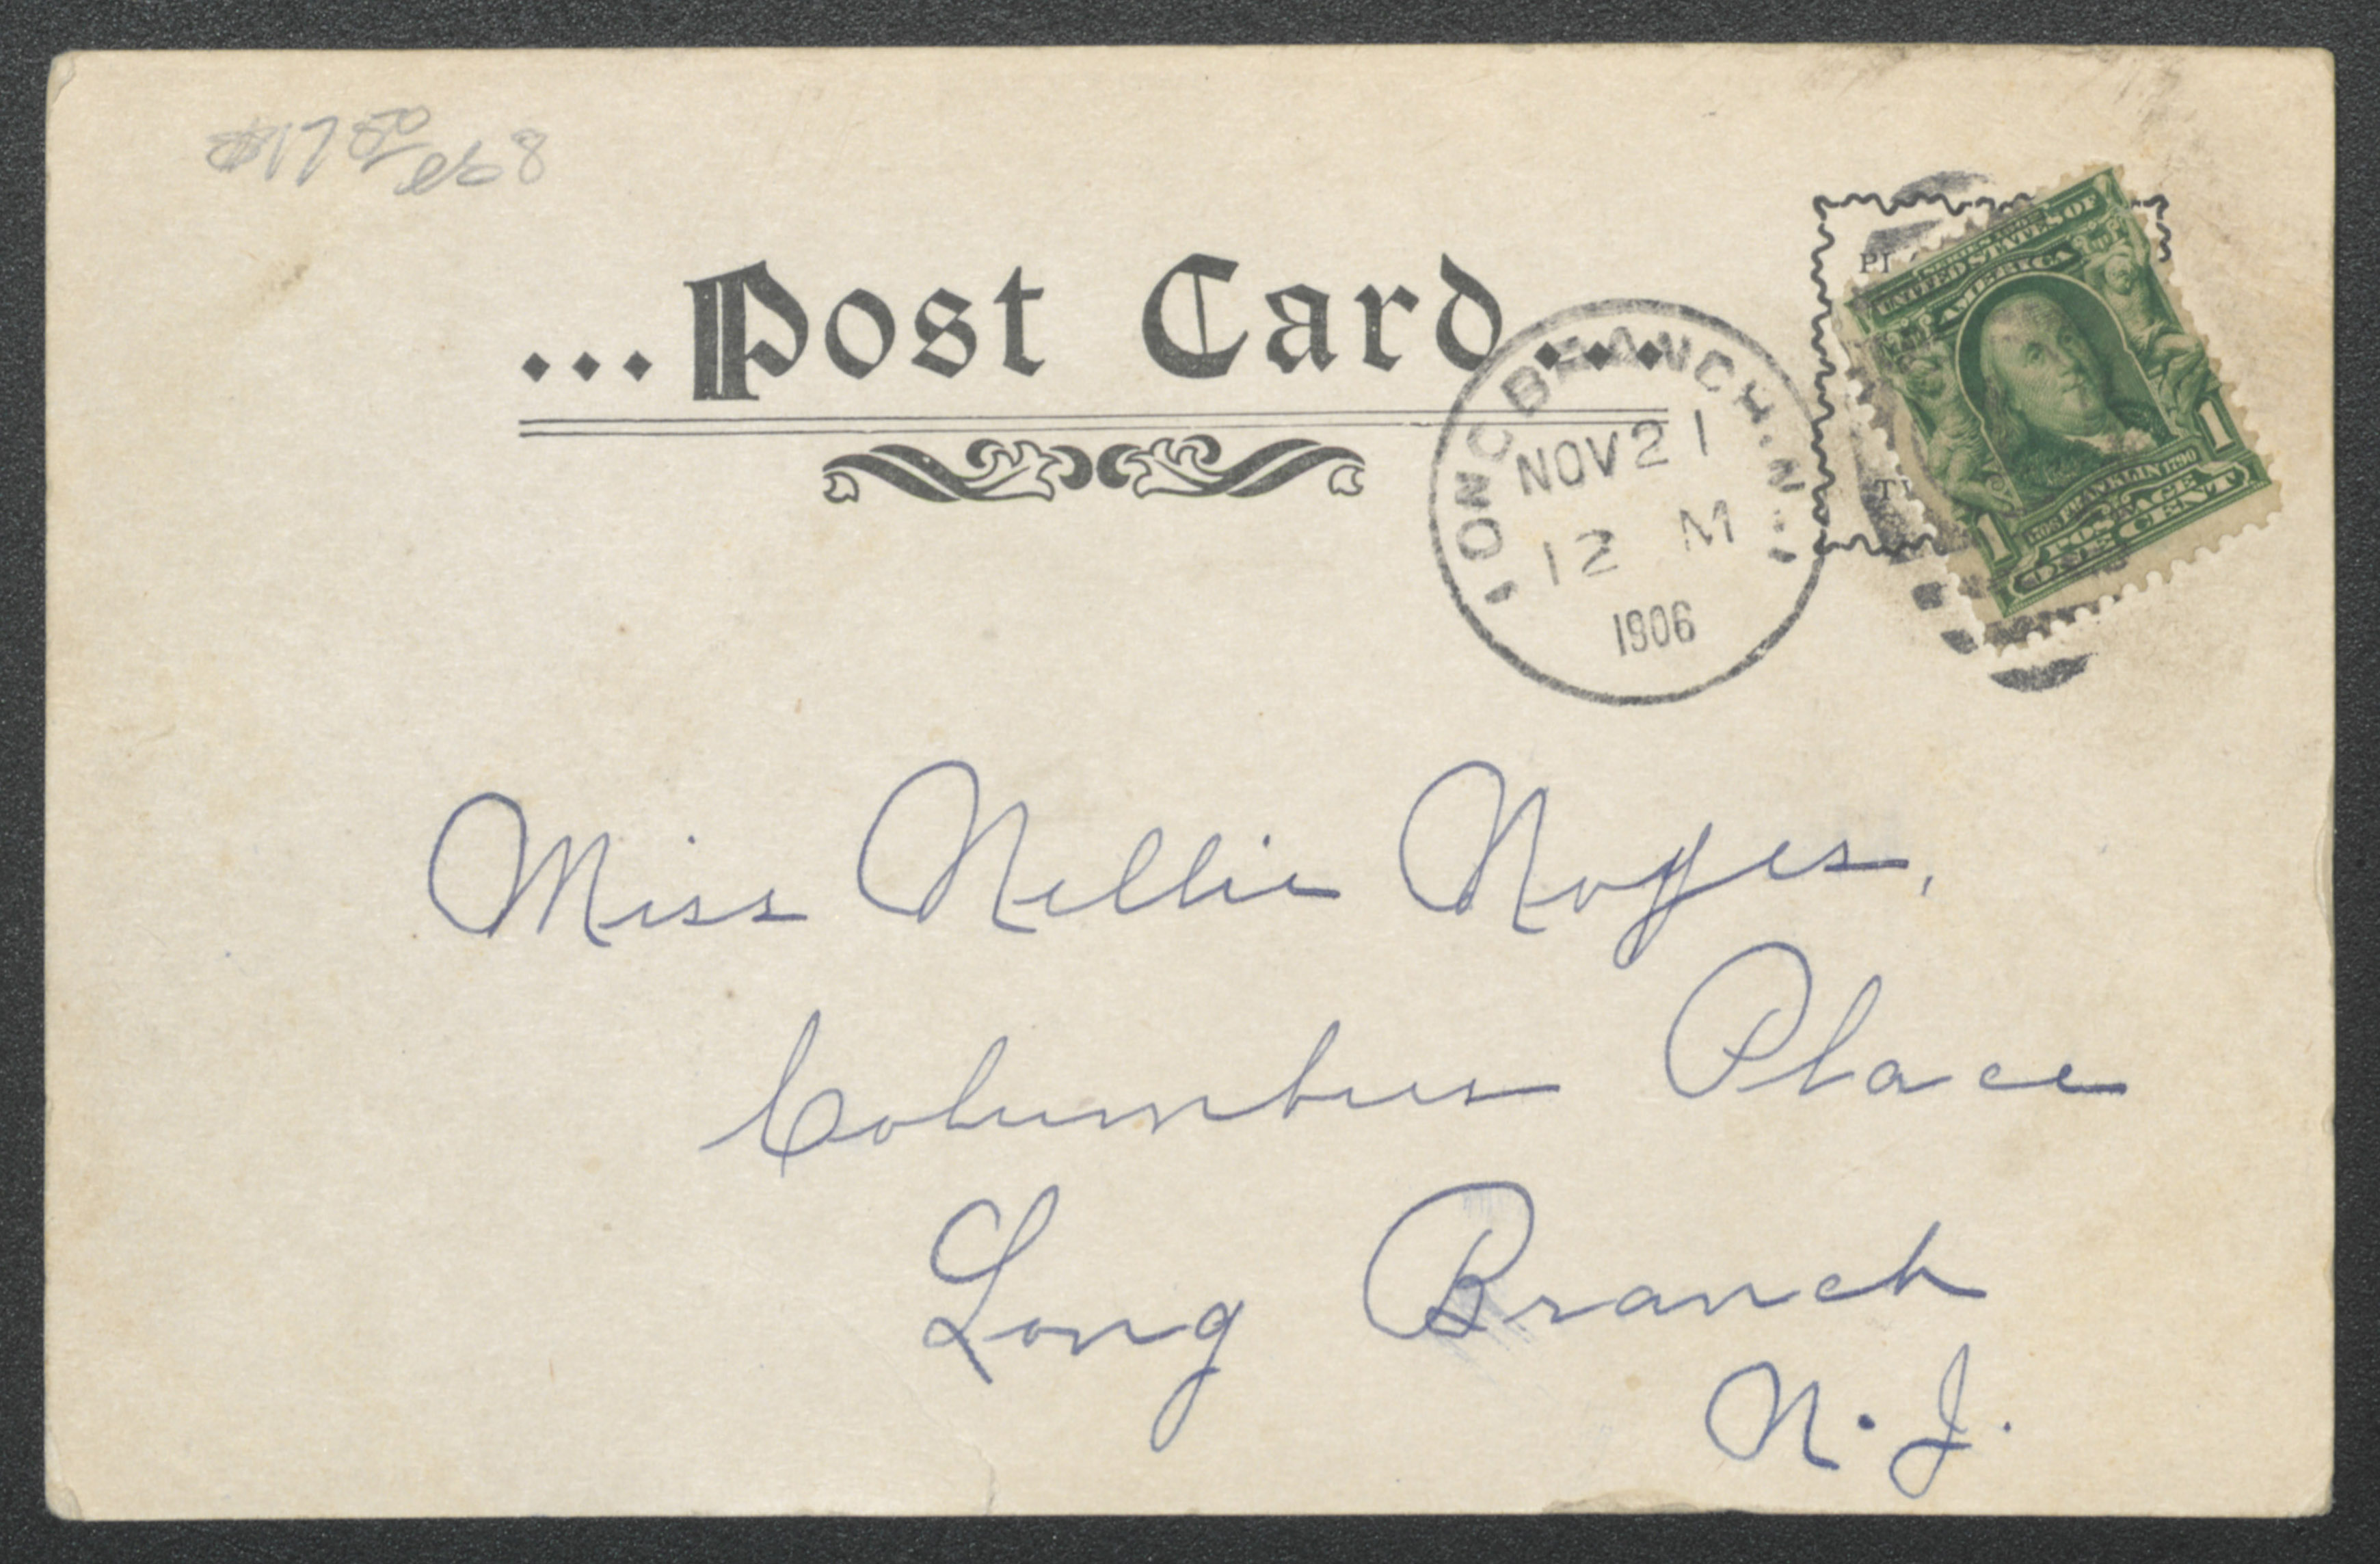 $17 50
...Post Card...
LONG BRANCH. N.J.
NOV 21
12 M
1906
SERIES 1902
UNITED STATES OF
AMERICA
1706 FRANKLIN 1790
1 1
POSTAGE
ONE CENT
Miss Nellie Noyes,
Columbus Place
Long Branch
N. J.